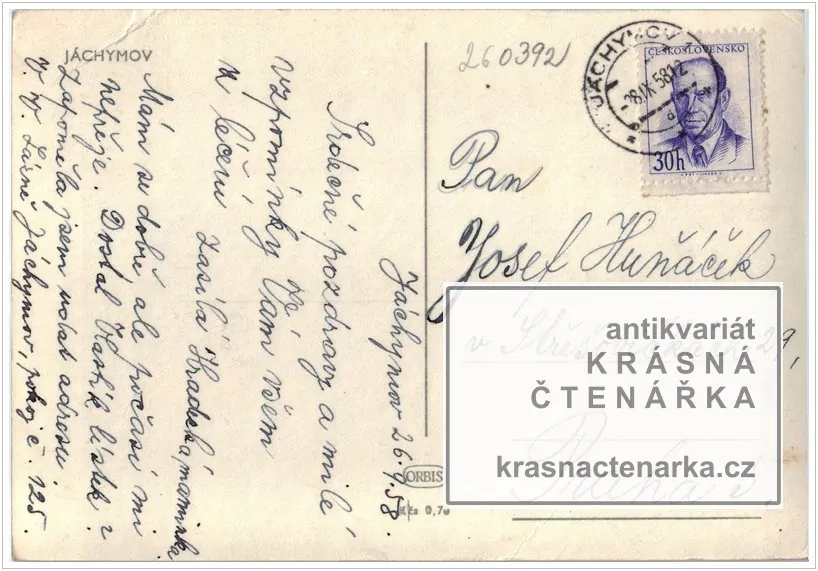 JÁCHYMOV
260392
JÁCHYMOV 1
28.IX.58.12
ČESKOSLOVENSKO
30h
Jáchymov 26.9.58.
Srdečné pozdravy a milé
vzpomínky Vám všem
z léčení
zasílá Hradecká, maminka
Mám se dobře ale počasí mi
nepřeje. Dostal Vašík lístek?
Zapoměla jsem udat adresu
Lázně Jáchymov, pokoj č. 125.
Pan
Josef Huňáček
v Střešovičkách 29,
Praha
ORBIS
Kčs 0,70
antikvariát
KRÁSNÁ
ČTENÁŘKA
krasnactenarka.cz